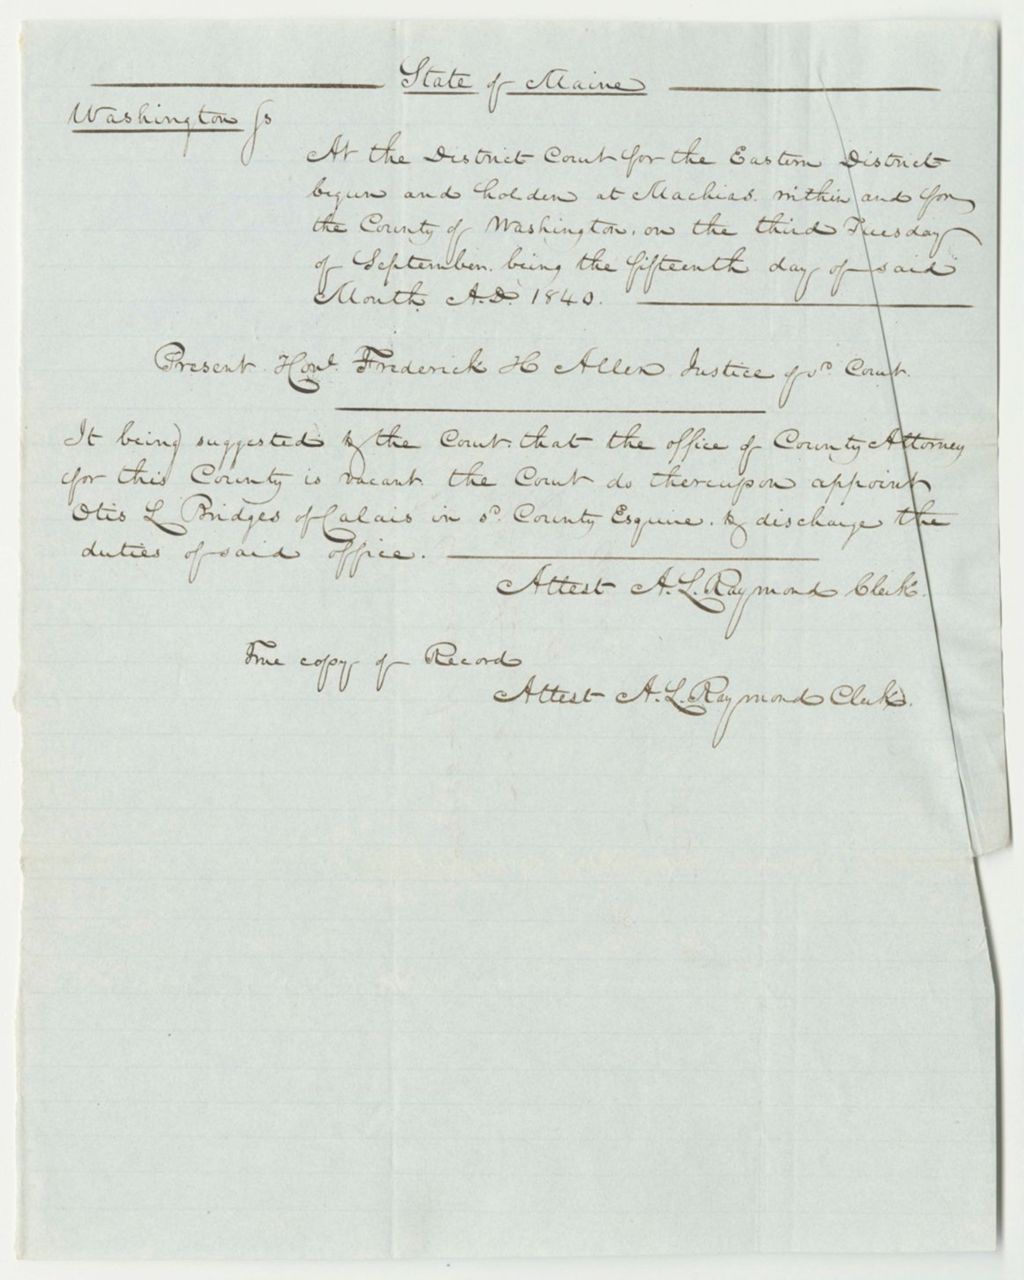 State of Maine
Washington ss
At the District Court for the Eastern District
begun and holden at Machias within and for
the County of Washington, on the third Tuesday
of September. being the fifteenth day of said
Month A.D. 1840.
Present Honl. Frederick H Allen Justice of sd Court.
It being suggested to the Court that the office of County Attorney
for this County is vacant the Court do thereupon appoint
Otis L Bridges of Calais in sd. County Esquire. to discharge the
duties of said office.
Attest A. L. Raymond Clerk.
True copy of Record
Attest A. L. Raymond Clerk.